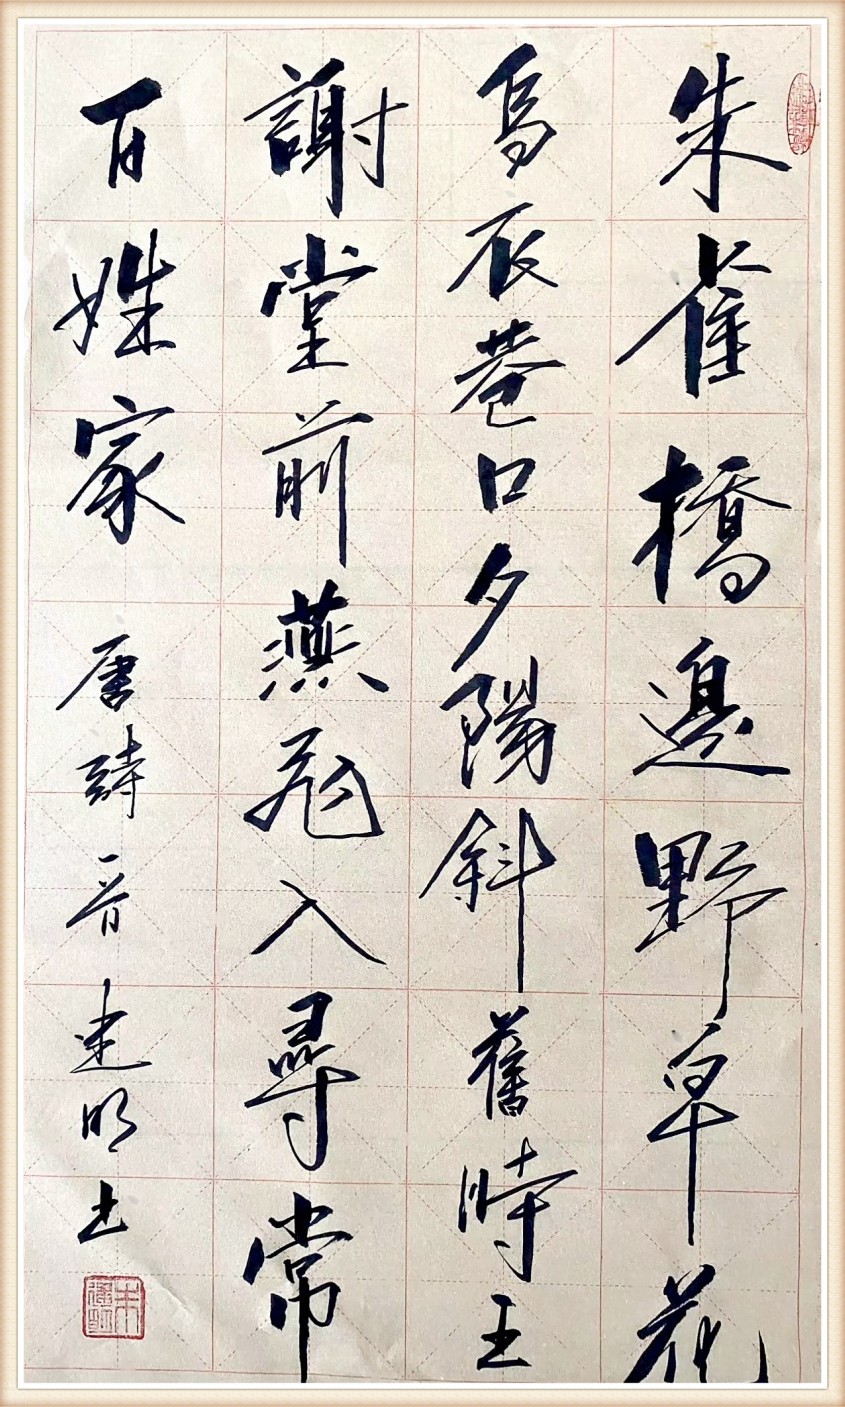 朱雀橋邊野草花
烏衣巷口夕陽斜舊時王
謝堂前燕飛入尋常
百姓家 唐詩一首 建明书
朱建明